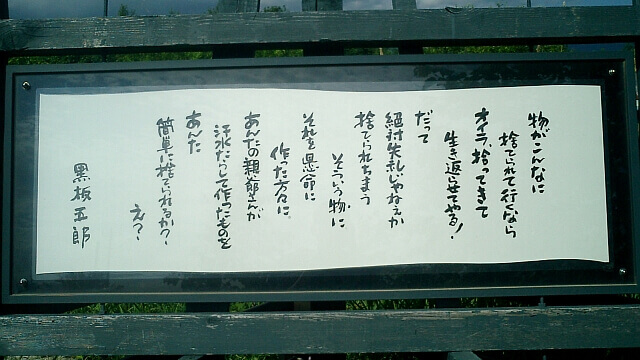 物がこんなに
捨てられて行くなら
オイラ、拾ってきて
生き返らせてやる!
だって
絶対失礼じゃねぇか
捨てられちまう
そういう物に
それを懸命に
作った方々に。
あんたの親爺さんが
汗水たらして作ったものを
あんた
簡単に捨てられるか?
え?
黒板五郎